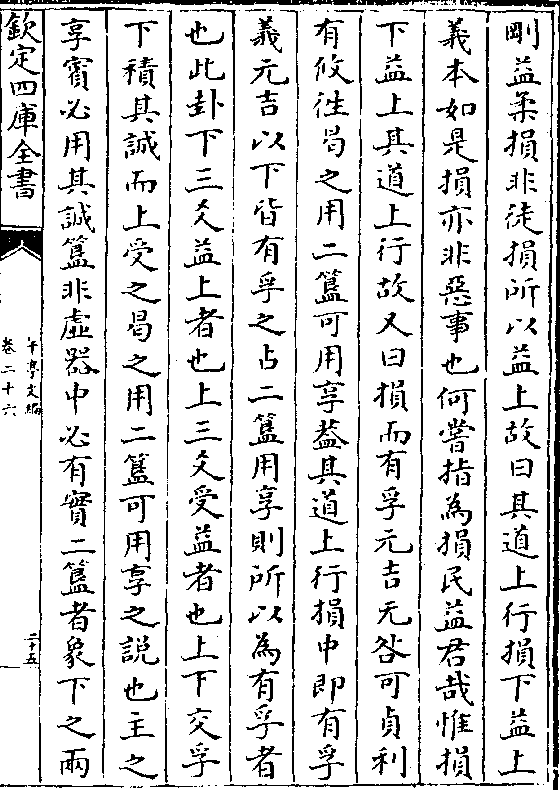 剛益柔損非徒損所以益上故曰其道上行損下益上
義本如是損亦非惡事也何嘗指為損民益君哉惟損
下益上其道上行故又曰損而有孚元吉无咎可貞利
有攸往曷之用二簋可用享蓋其道上行損中即有孚
義元吉以下皆有孚之占二簋用享則所以為有孚者
也此卦下三爻益上者也上三爻受益者也上下交孚
下積其誠而上受之曷之用二簋可用享之説也主之
享賓必用其誠簋非虛器中必有實二簋者象下之兩
欽定四庫全書
卷二十六
二十五